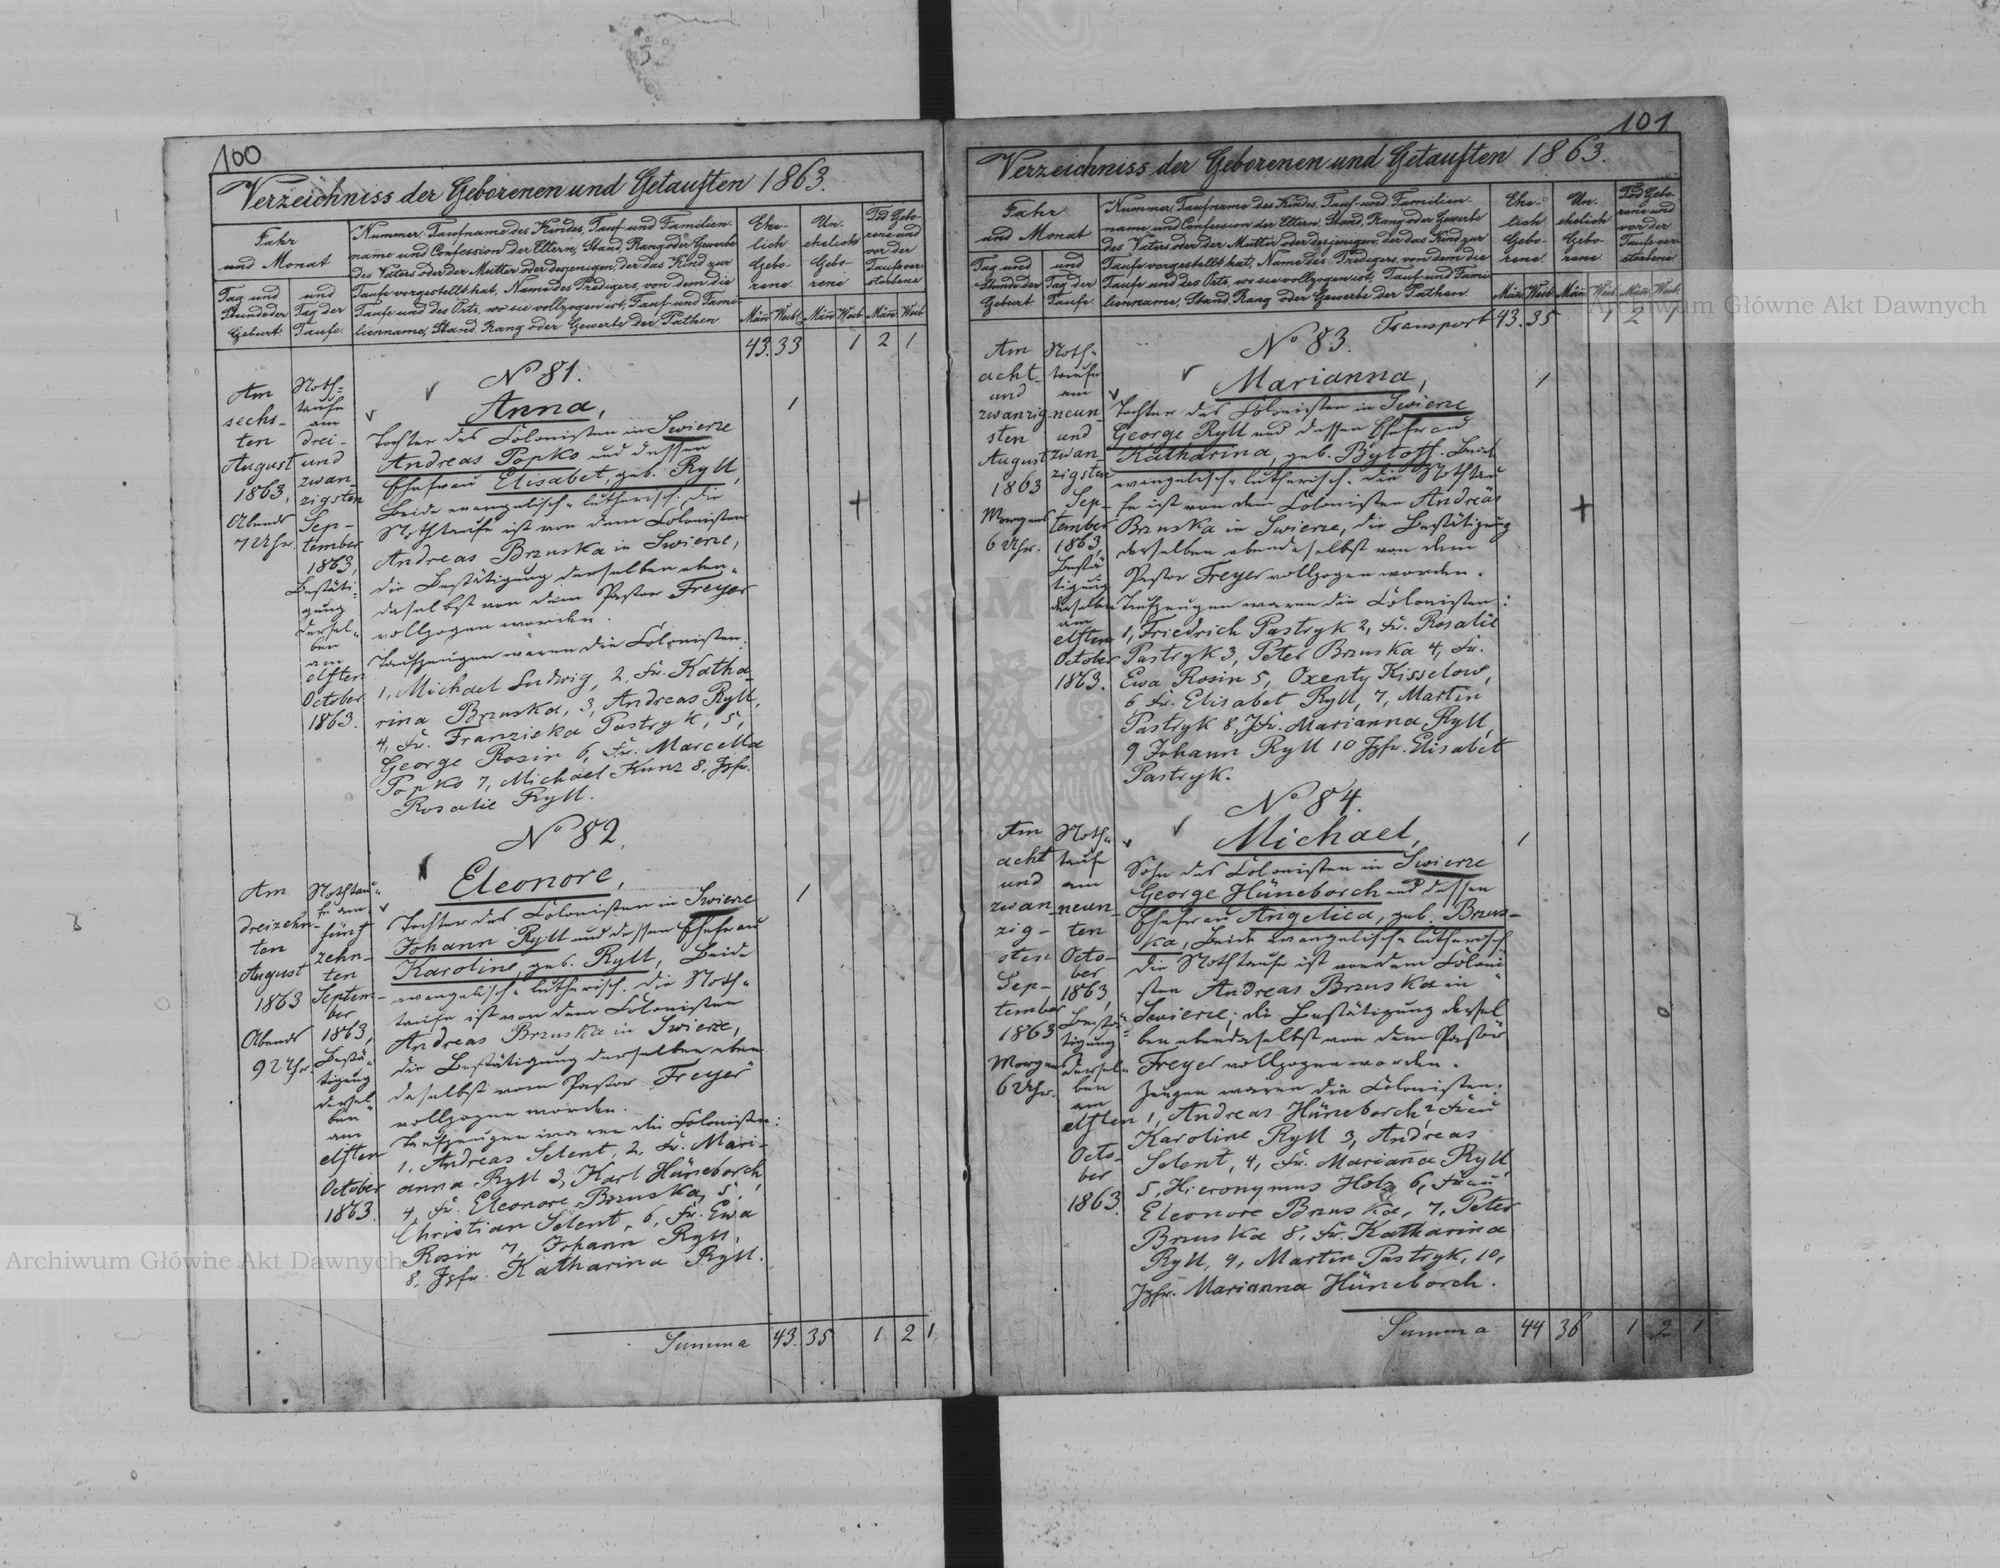 100
Verzeichniss der Geborenen und Getauften 1863.
Jahr
und Monat
Tag und
Stunde der
Geburt.
und
Tag der
Taufe.
Nummer, Taufname des Kindes, Tauf- und Familien-
name und Confession der Eltern, Stand, Rang oder Gewerbe
des Vaters oder der Mutter oder desjenigen, der das Kind zur
Taufe vorgestellt hat, Name des Predigers, von dem die
Taufe und des Orts, wo sie vollzogen ist, Tauf- und Fami-
lienname, Stand, Rang oder Gewerbe der Pathen
Ehe-
lich
Gebo-
rene.
Un-
ehelich
Gebo-
rene
Tod Gebo-
rene und
vor der
Taufe ver-
storbene
Män Weib. Män Weib Män Weib
43. 33 1 2 1
Am
sechs-
ten
August
1863,
Abends
7 Uhr.
Noth-
taufe
am
drei-
und
zwan-
zigsten
Sep-
tember
1863,
Bestäti-
gung
dersel-
ben
am
elften
October
1863.
No 81.
Anna,
Tochter des Colonisten in Swierze
Andreas Popko und dessen
Ehefrau Elisabet, geb. Ryll,
Beide evangelisch-lutherisch. Die
Nothtaufe ist von dem Colonisten
Andreas Brzuska in Swierze,
die Bestätigung derselben eben-
daselbst von dem Pastor Freyer
vollzogen worden.
Taufzeugen waren die Colonisten:
1, Michael Ludwig, 2, Fr. Katha-
rina Brzuska, 3, Andreas Ryll,
4, Fr. Franziska Pastryk, 5,
George Rosin 6, Fr. Marcella
Popko 7, Michael Kunz 8, Jgfr.
Rosalie Ryll.
1
+
Am
dreizehn-
ten
August
1863
Abends
9 Uhr.
Nothtau-
fe am
fünf
zehn-
ten
Septem-
ber
1863,
Bestä-
tigung
dersel-
ben
am
elften
October
1863.
No 82.
Eleonore,
Tochter des Colonisten in Swierze
Johann Ryll und dessen Ehefrau
Karoline, geb. Ryll, Beide
evangelisch-lutherisch. Die Noth-
taufe ist von dem Colonisten
Andreas Brzuska in Swierze,
die Bestätigung derselben eben
daselbst vom Pastor Freyer
vollzogen worden.
Taufzeugen waren die Colonisten:
1, Andreas Selent, 2, Fr. Mari-
anna Ryll 3, Karl Hüneborch,
4, Fr. Eleonore Brzuska, 5,
Christian Selent, 6, Fr. Ewa
Rosin 7, Johann Ryll,
8, Jgfr. Katharina Ryll.
1
Summa 43. 35 1 2 1
101
Verzeichniss der Geborenen und Getauften 1863.
Jahr
und Monat
Tag und
Stunde der
Geburt.
und
Tag der
Taufe.
Nummer, Taufname des Kindes, Tauf- und Familien-
name und Confession der Eltern, Stand, Rang oder Gewerbe
des Vaters oder der Mutter oder desjenigen, der das Kind zur
Taufe vorgestellt hat, Name des Predigers, von dem die
Taufe und des Orts, wo sie vollzogen ist, Tauf- und Fami-
lienname, Stand, Rang oder Gewerbe der Pathen.
Ehe-
lich
Gebo-
rene.
Un-
ehelich
Gebo-
rene.
Tod Gebo-
rene und
vor der
Taufe ver-
storbene
Män Weib. Män Weib Män Weib
Transport 43. 35 1 2 1
Am
acht-
und
zwanzig-
sten
August
1863
Morgens
6 Uhr.
Noth-
taufe
am
neun-
und
zwan-
zigsten
Sep-
tember
1863,
Bestä
tigung
derselben
am
elften
October
1863.
No 83.
Marianna,
Tochter des Colonisten in Swierze
George Ryll und dessen Ehefrau
Katharina, geb. Byloff. Beide
evangelisch-lutherisch. Die Nothtau
fe ist von dem Colonisten Andreas
Brzuska in Swierze, die Bestätigung
derselben ebendaselbst von dem
Pastor Freyer vollzogen worden.
Taufzeugen waren die Colonisten:
1, Friedrich Pastryk 2, Fr. Rosalie
Pastryk 3, Peter Brzuska 4, Fr.
Ewa Rosin 5, Oxenty Kisselow,
6, Fr. Elisabet Ryll, 7, Martin
Pastryk 8, Jfr. Marianna Ryll,
9 Johann Ryll 10 Jgfr. Elisabet
Pastryk.
1
+
Am
acht
und
zwan-
zig-
sten
Sep-
tember
1863
Morgens
6 Uhr.
Noth-
taufe
am
neun-
ten
Octo-
ber
1863,
Bestä-
tigung
dersel-
ben
am
elften
Octo-
ber
1863.
No 84.
Michael,
Sohn des Colonisten in Swierze
George Hüneborch und dessen
Ehefrau Angelica, geb. Brzus-
ka, Beide evangelisch-lutherisch.
Die Nothtaufe ist von dem Coloni-
sten Andreas Brzuska in
Swierze; die Bestätigung dersel
ben ebendaselbst von dem Pastor
Freyer vollzogen worden.
Zeugen waren die Colonisten:
1, Andreas Hüneborch 2 Frau
Karoline Ryll 3, Andreas
Selent, 4, Fr. Mariana Ryll
5, Hieronymus Holz 6, Frau
Eleonore Brzuska, 7, Peter
Brzuska 8, Fr. Katharina
Ryll, 9, Martin Pastryk, 10,
Jgfr. Marianna Hüneborch.
1
Summa 44 36 1 2 1
Archiwum Główne Akt Dawnych
Archiwum Główne Akt Dawnych